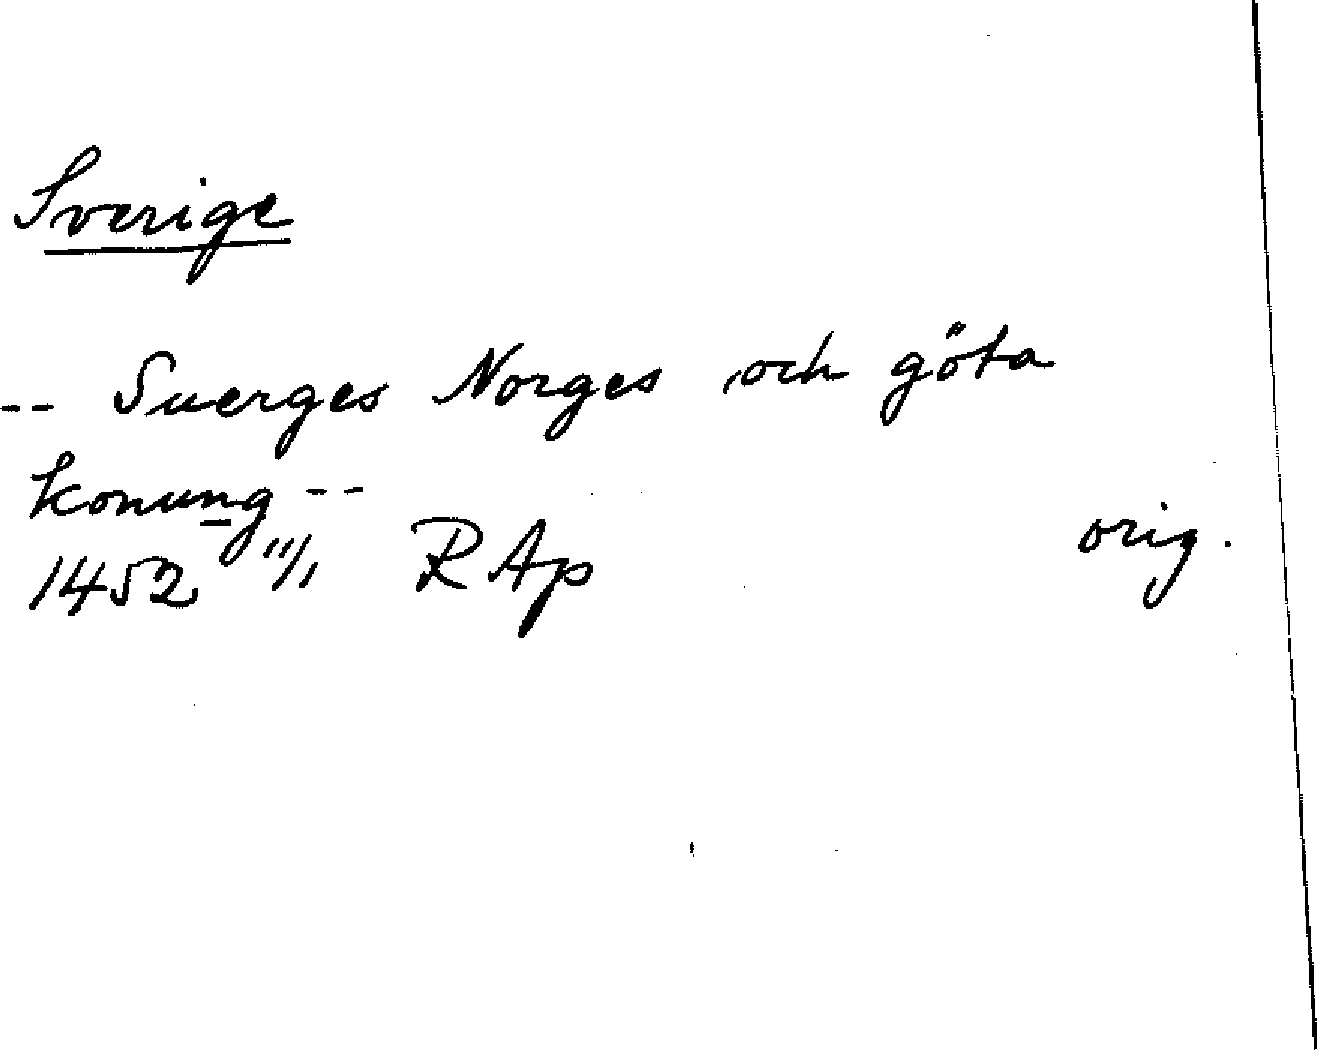 Sverige
-- Suerges Norges och göta
konung --
1452 11/1 RAp orig.